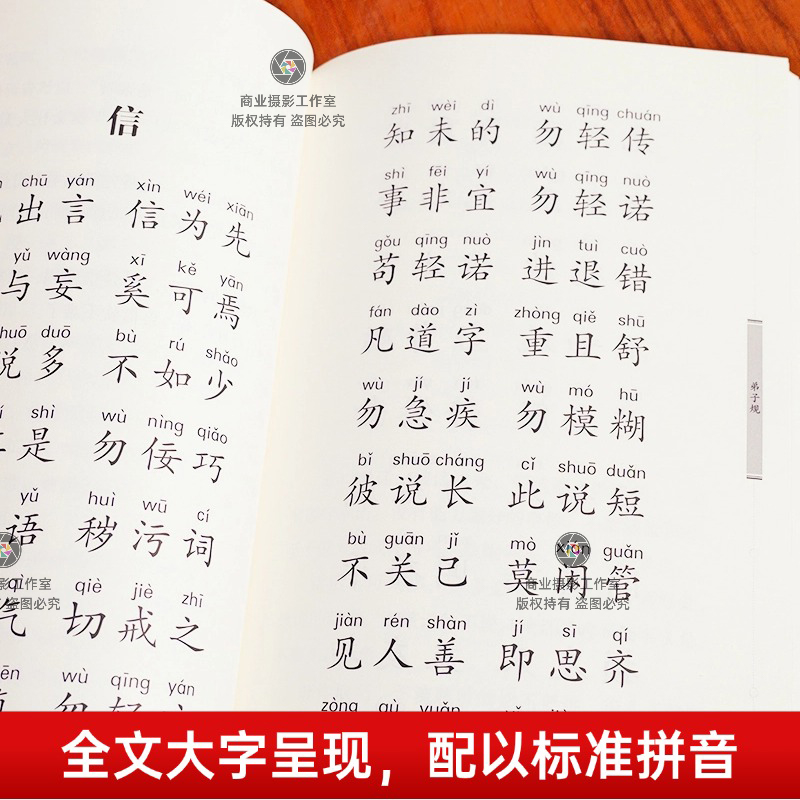 信
chū yán xìn wéi xiān
出言 信为先
yǔ wàng xī kě yān
与妄 奚可焉
duō bù rú shǎo
说多 不如少
shì wù nìng qiǎo
是 勿佞巧
yǔ huì wū cí
语 秽污词
qì qiè jiè zhī
气 切戒之
wù qīng yán
zhī wèi dì wù qīng chuán
知未的 勿轻传
shì fēi yí wù qīng nuò
事非宜 勿轻诺
gǒu qīng nuò jìn tuì cuò
苟轻诺 进退错
fán dào zì zhòng qiě shū
凡道字 重且舒
wù jí jí wù mó hū
勿急疾 勿模糊
bǐ shuō cháng cǐ shuō duǎn
彼说长 此说短
bù guān jǐ mò xián guǎn
不关己 莫闲管
jiàn rén shàn jí sī qí
见人善 即思齐
zòng qù yuǎn
弟子规
商业摄影工作室
版权持有 盗图必究
商业摄影工作室
版权持有 盗图必究
工作室
盗图必究
全文大字呈现，配以标准拼音